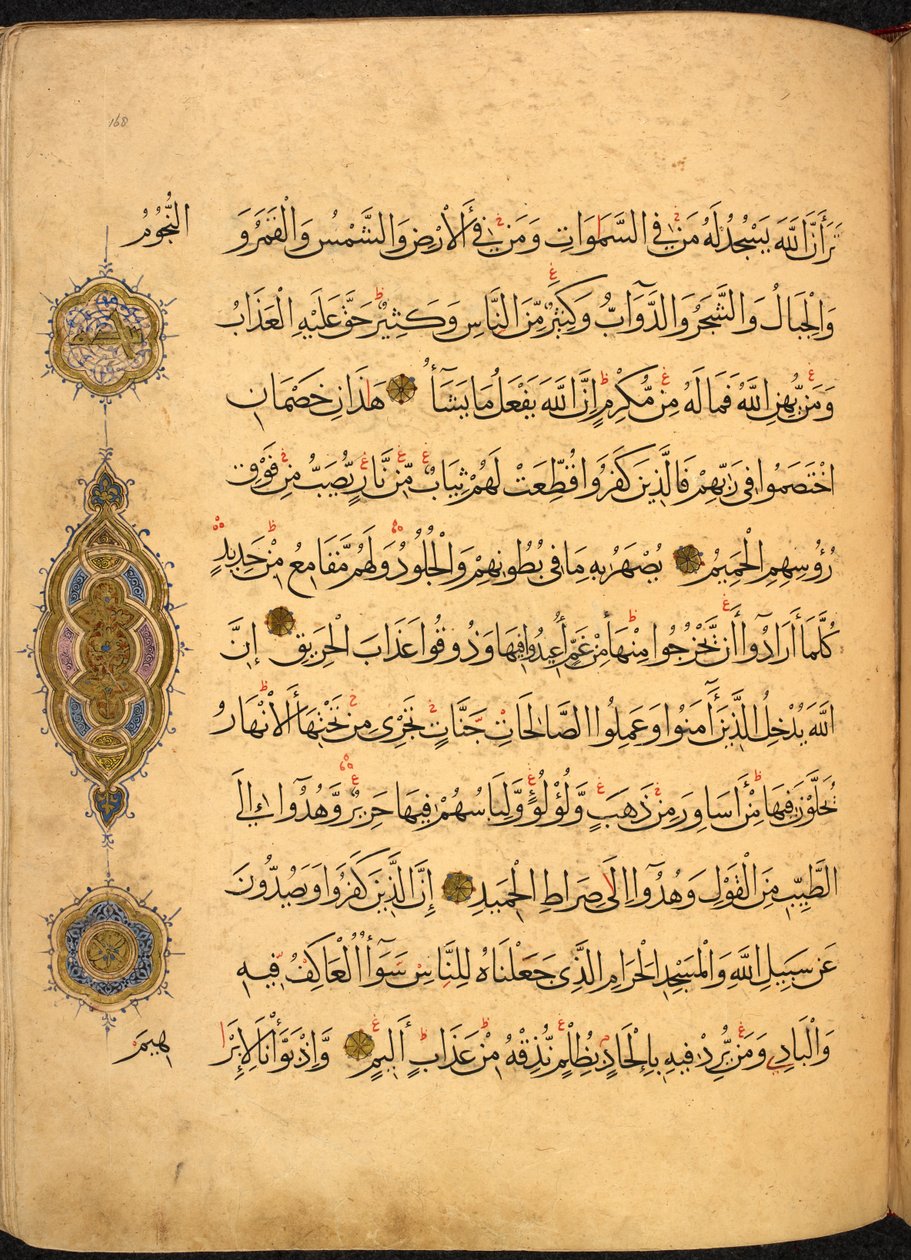 168
تَرَ أَنَّ اللَّهَ يَسْجُدُ لَهُ مَنْ فِي السَّمَوَاتِ وَمَنْ فِي الْأَرْضِ وَالشَّمْسُ وَالْقَمَرُ وَ النُّجُومُ
وَالْجِبَالُ وَالشَّجَرُ وَالدَّوَآبُّ وَكَثِيرٌ مِّنَ النَّاسِ وَكَثِيرٌ حَقَّ عَلَيْهِ الْعَذَابُ
وَمَنْ يُّهِنِ اللَّهُ فَمَا لَهُ مِنْ مُّكْرِمٍ إِنَّ اللَّهَ يَفْعَلُ مَا يَشَآءُ هَذَانِ خَصْمَانِ
اخْتَصَمُوا فِي رَبِّهِمْ فَالَّذِينَ كَفَرُوا قُطِّعَتْ لَهُمْ ثِيَابٌ مِّنْ نَّارٍ يُّصَبُّ مِنْ فَوْقِ
رُؤُسِهِمِ الْحَمِيمُ يُصْهَرُ بِهِ مَا فِي بُطُونِهِمْ وَالْجُلُودُ وَلَهُمْ مَّقَامِعُ مِنْ حَدِيدٍ
كُلَّمَآ أَرَادُوآ أَنْ يَّخْرُجُوا مِنْهَا مِنْ غَمٍّ أُعِيدُوا فِيهَا وَذُوقُوا عَذَابَ الْحَرِيقِ إِنَّ
اللَّهَ يُدْخِلُ الَّذِينَ آمَنُوا وَعَمِلُوا الصَّالِحَاتِ جَنَّاتٍ تَجْرِي مِنْ تَحْتِهَا الْأَنْهَارُ
يُحَلَّوْنَ فِيهَا مِنْ أَسَاوِرَ مِنْ ذَهَبٍ وَّلُؤْلُؤٍ وَّلِبَاسُهُمْ فِيهَا حَرِيرٌ وَّهُدُوآ إِلَى
الطَّيِّبِ مِنَ الْقَوْلِ وَهُدُوآ إِلَى صِرَاطِ الْحَمِيدِ إِنَّ الَّذِينَ كَفَرُوا وَيَصُدُّونَ
عَنْ سَبِيلِ اللَّهِ وَالْمَسْجِدِ الْحَرَامِ الَّذِي جَعَلْنَاهُ لِلنَّاسِ سَوَآءً الْعَاكِفُ فِيهِ
وَالْبَادِي وَمَنْ يُّرِدْ فِيهِ بِإِلْحَادٍ بِظُلْمٍ نُّذِقْهُ مِنْ عَذَابٍ أَلِيمٍ وَإِذْ بَوَّأْنَا لِإِبْرَا هِيمَ